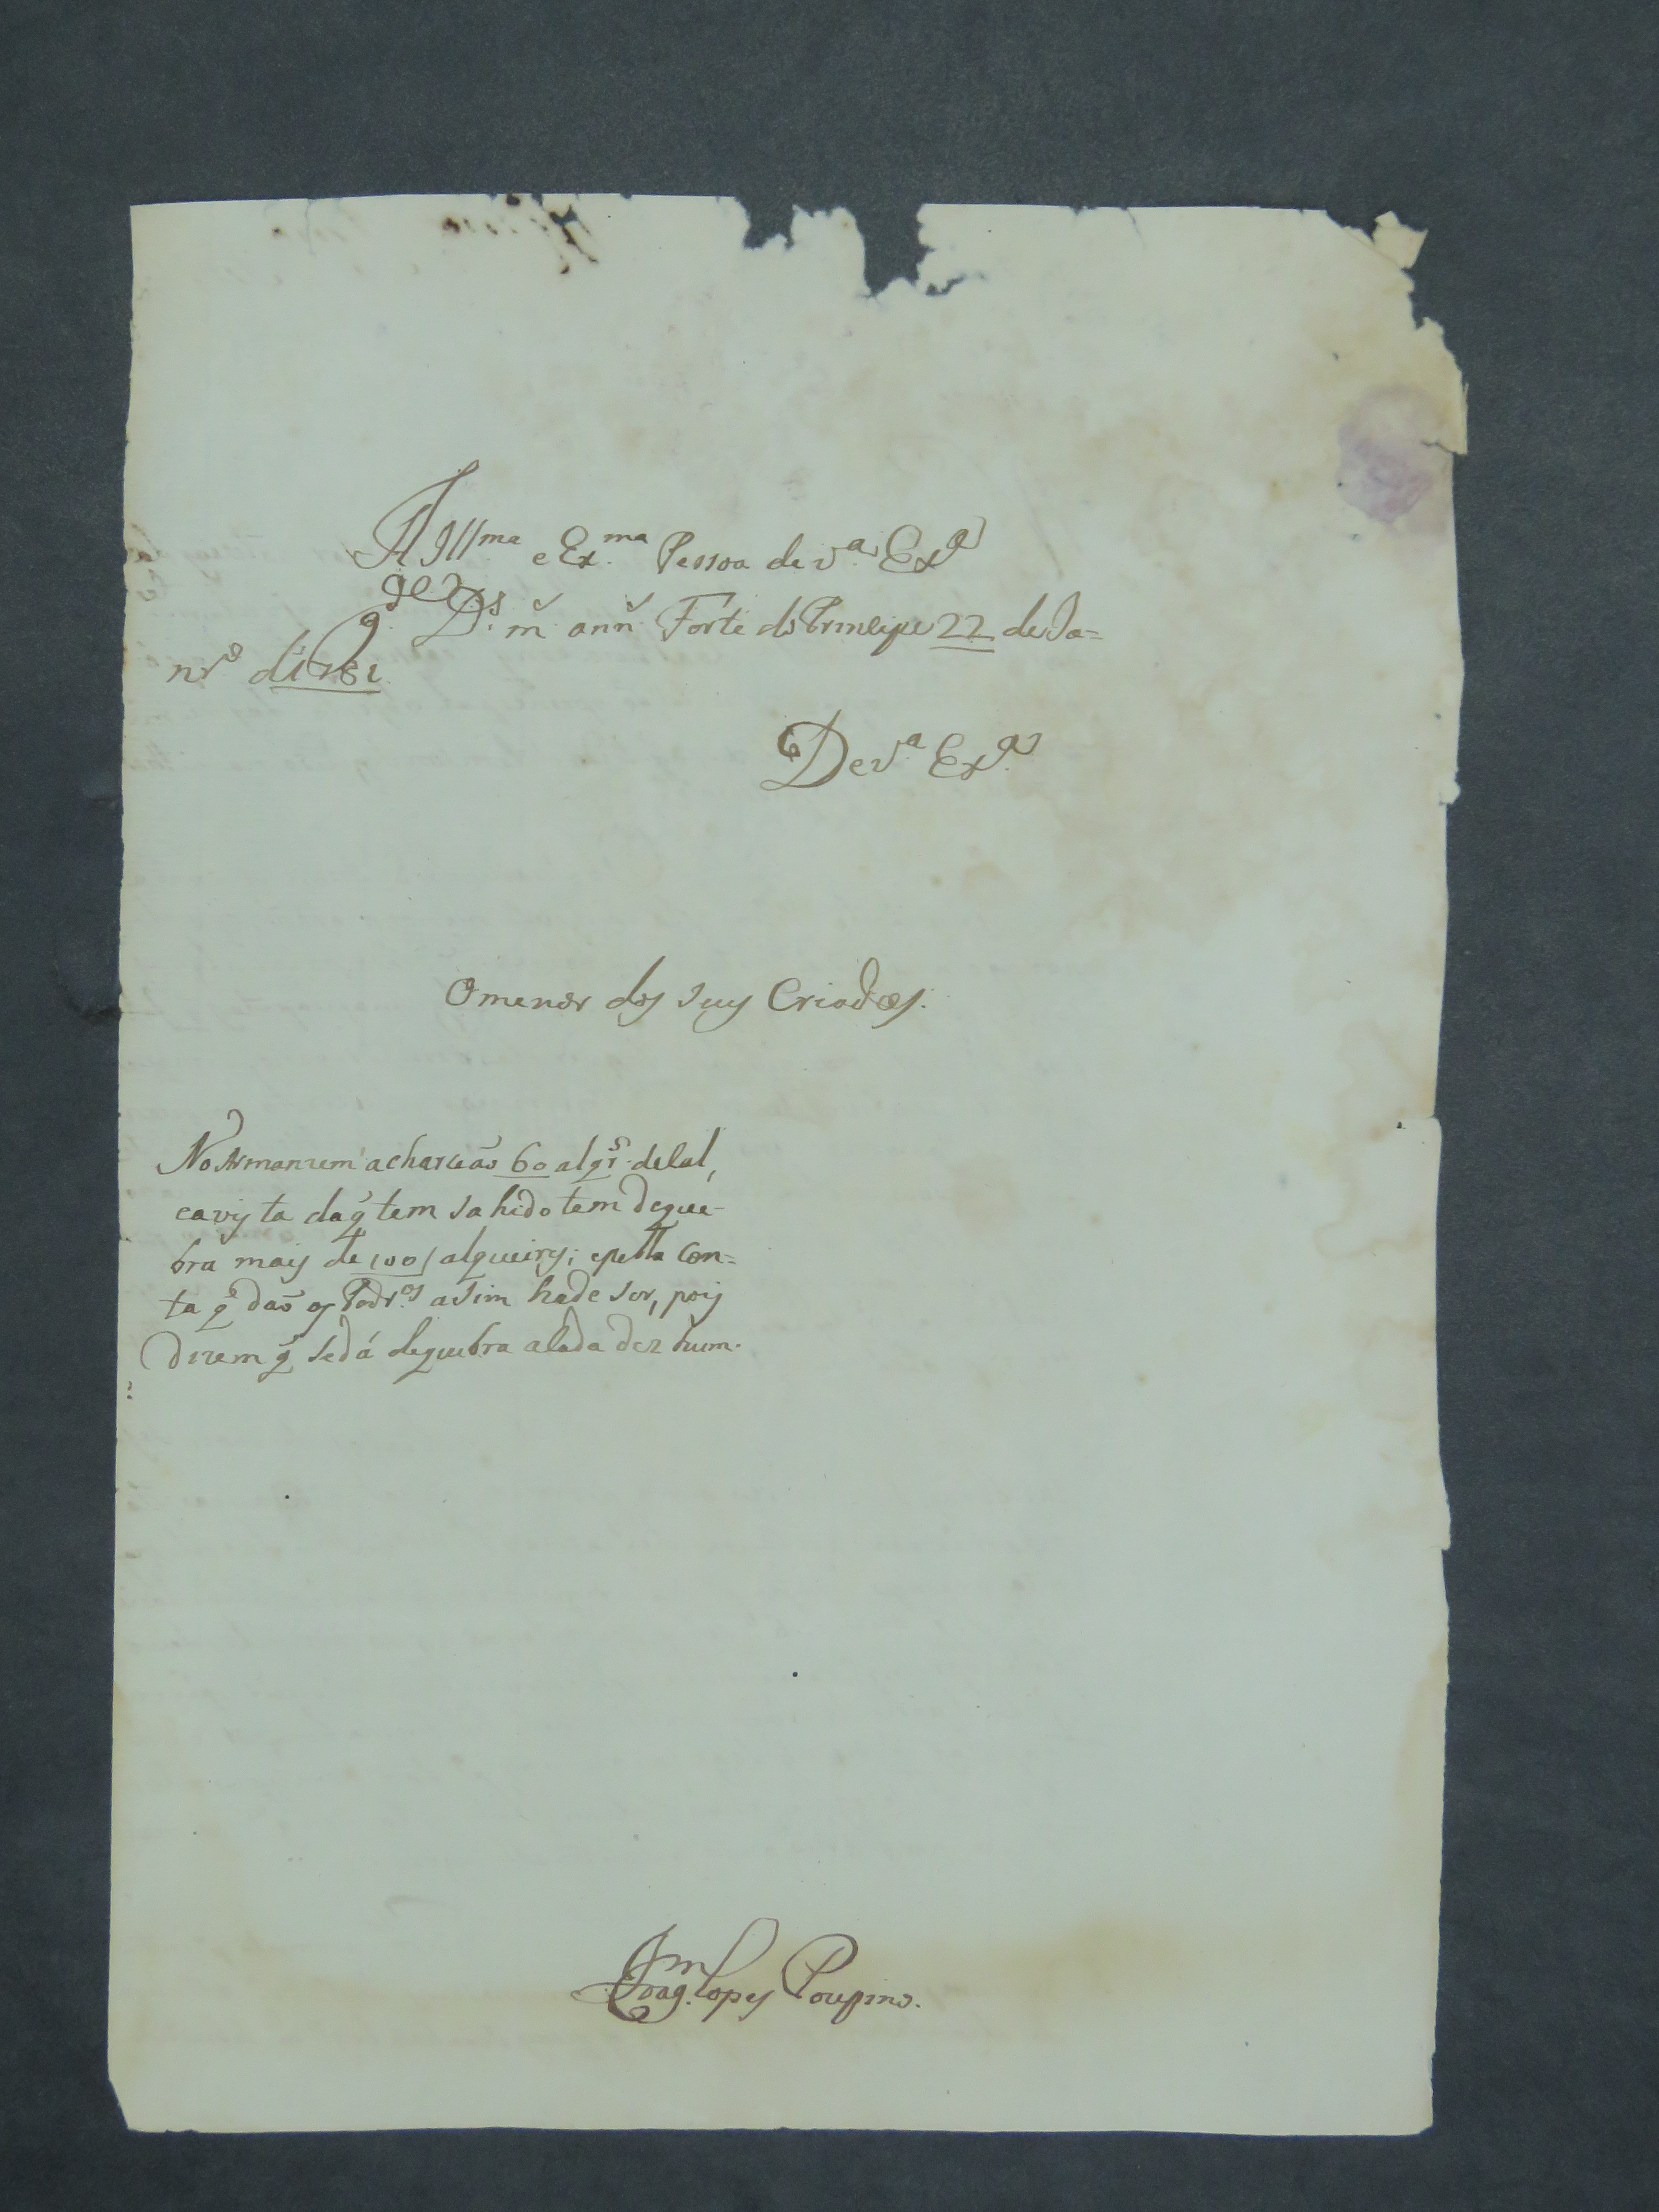 A Illma e Exma Pessoa de va Exa
gde Ds m ann Forte do Principe 22 de Ja=
nro d'1781
De Va Exa
O menor dos seus Criados.
No Armanzem acharceão 60 alqrs de sal,
eavista da q̃ tem sahido tem de que-
bra mais de 100 alqueires; epella con=
ta q̃ daõ os Podros asim hade ser, pois
dizem q̃ se dá de quebra a cada dez hum.
Joaqm Lopes Poupino.